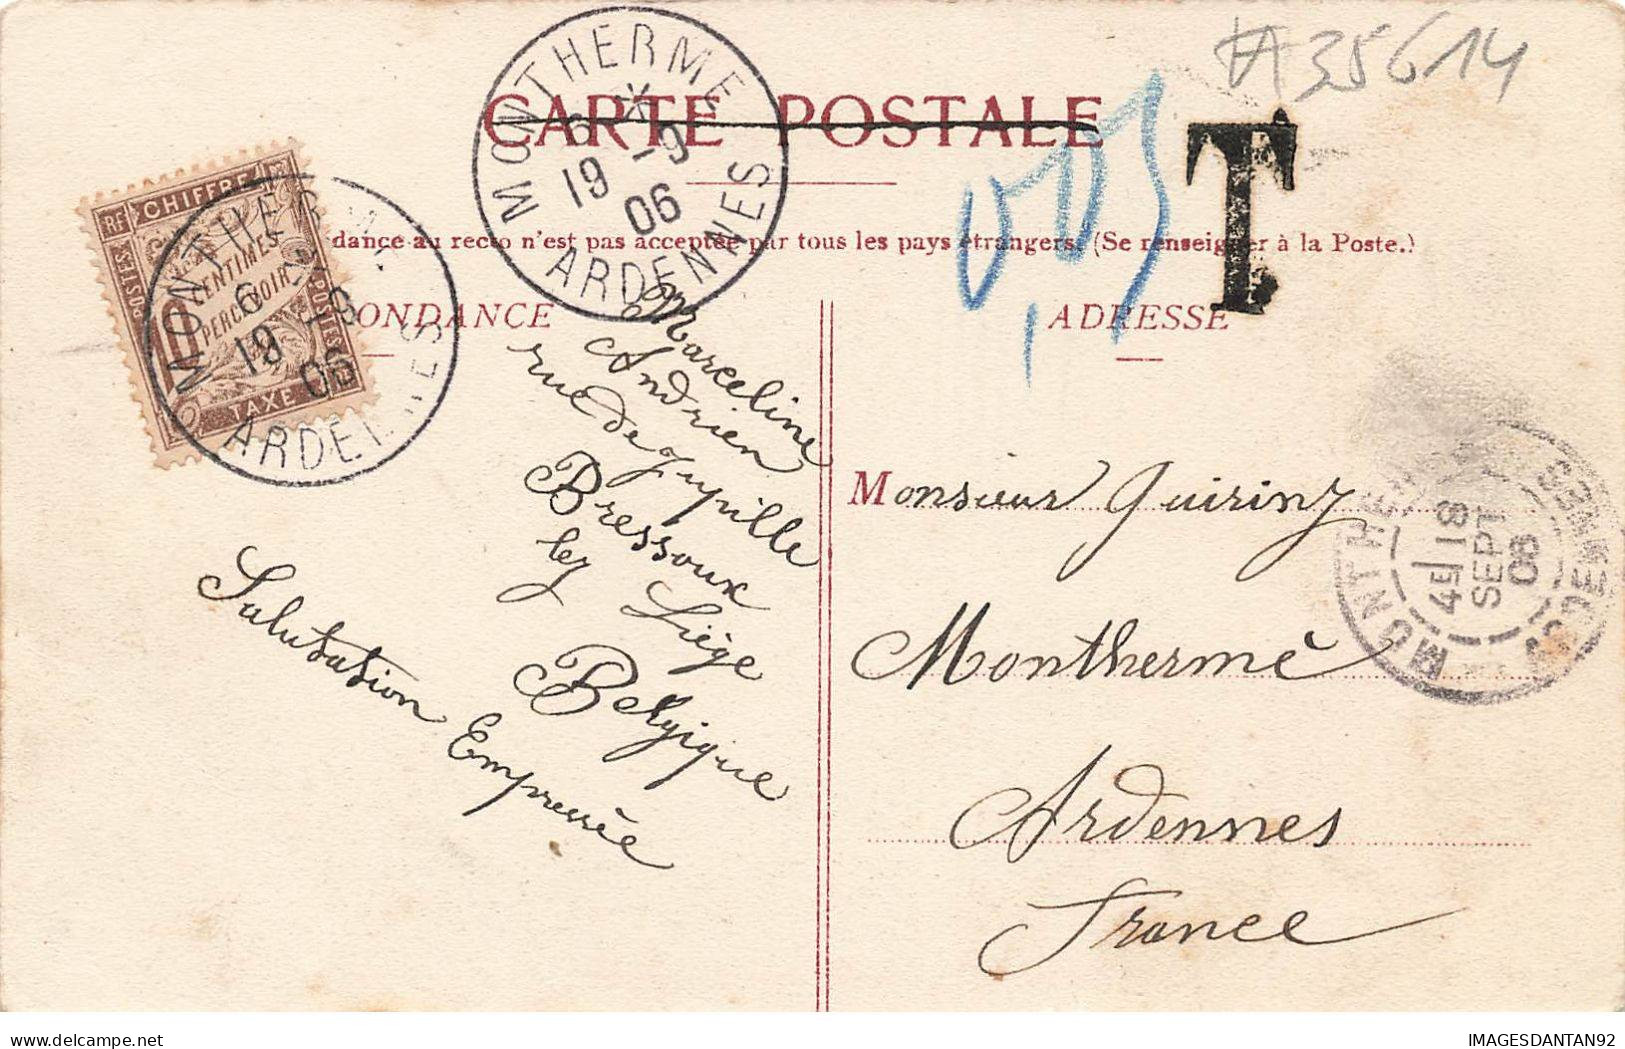 #35614
CARTE POSTALE
MONTHERME
6 * 19 -9 06
ARDENNES
0,05
T
RF CHIFFRE TAXE
10 CENTIMES À PERCEVOIR
POSTES
MONTHERME
6 19 -9 06
ARDENNES
dance au recto n'est pas acceptée par tous les pays étrangers. (Se renseigner à la Poste.)
ONDANCE
ADRESSE
Marceline
Andrien
rue de Jupille
Bressoux
lez Liège
Belgique
Salutation Empressée
Monsieur Quiriny
Monthermé
Ardennes
France
MONTHERME
4E 18 SEPT 06
ARDENNES
IMAGESDANTAN92